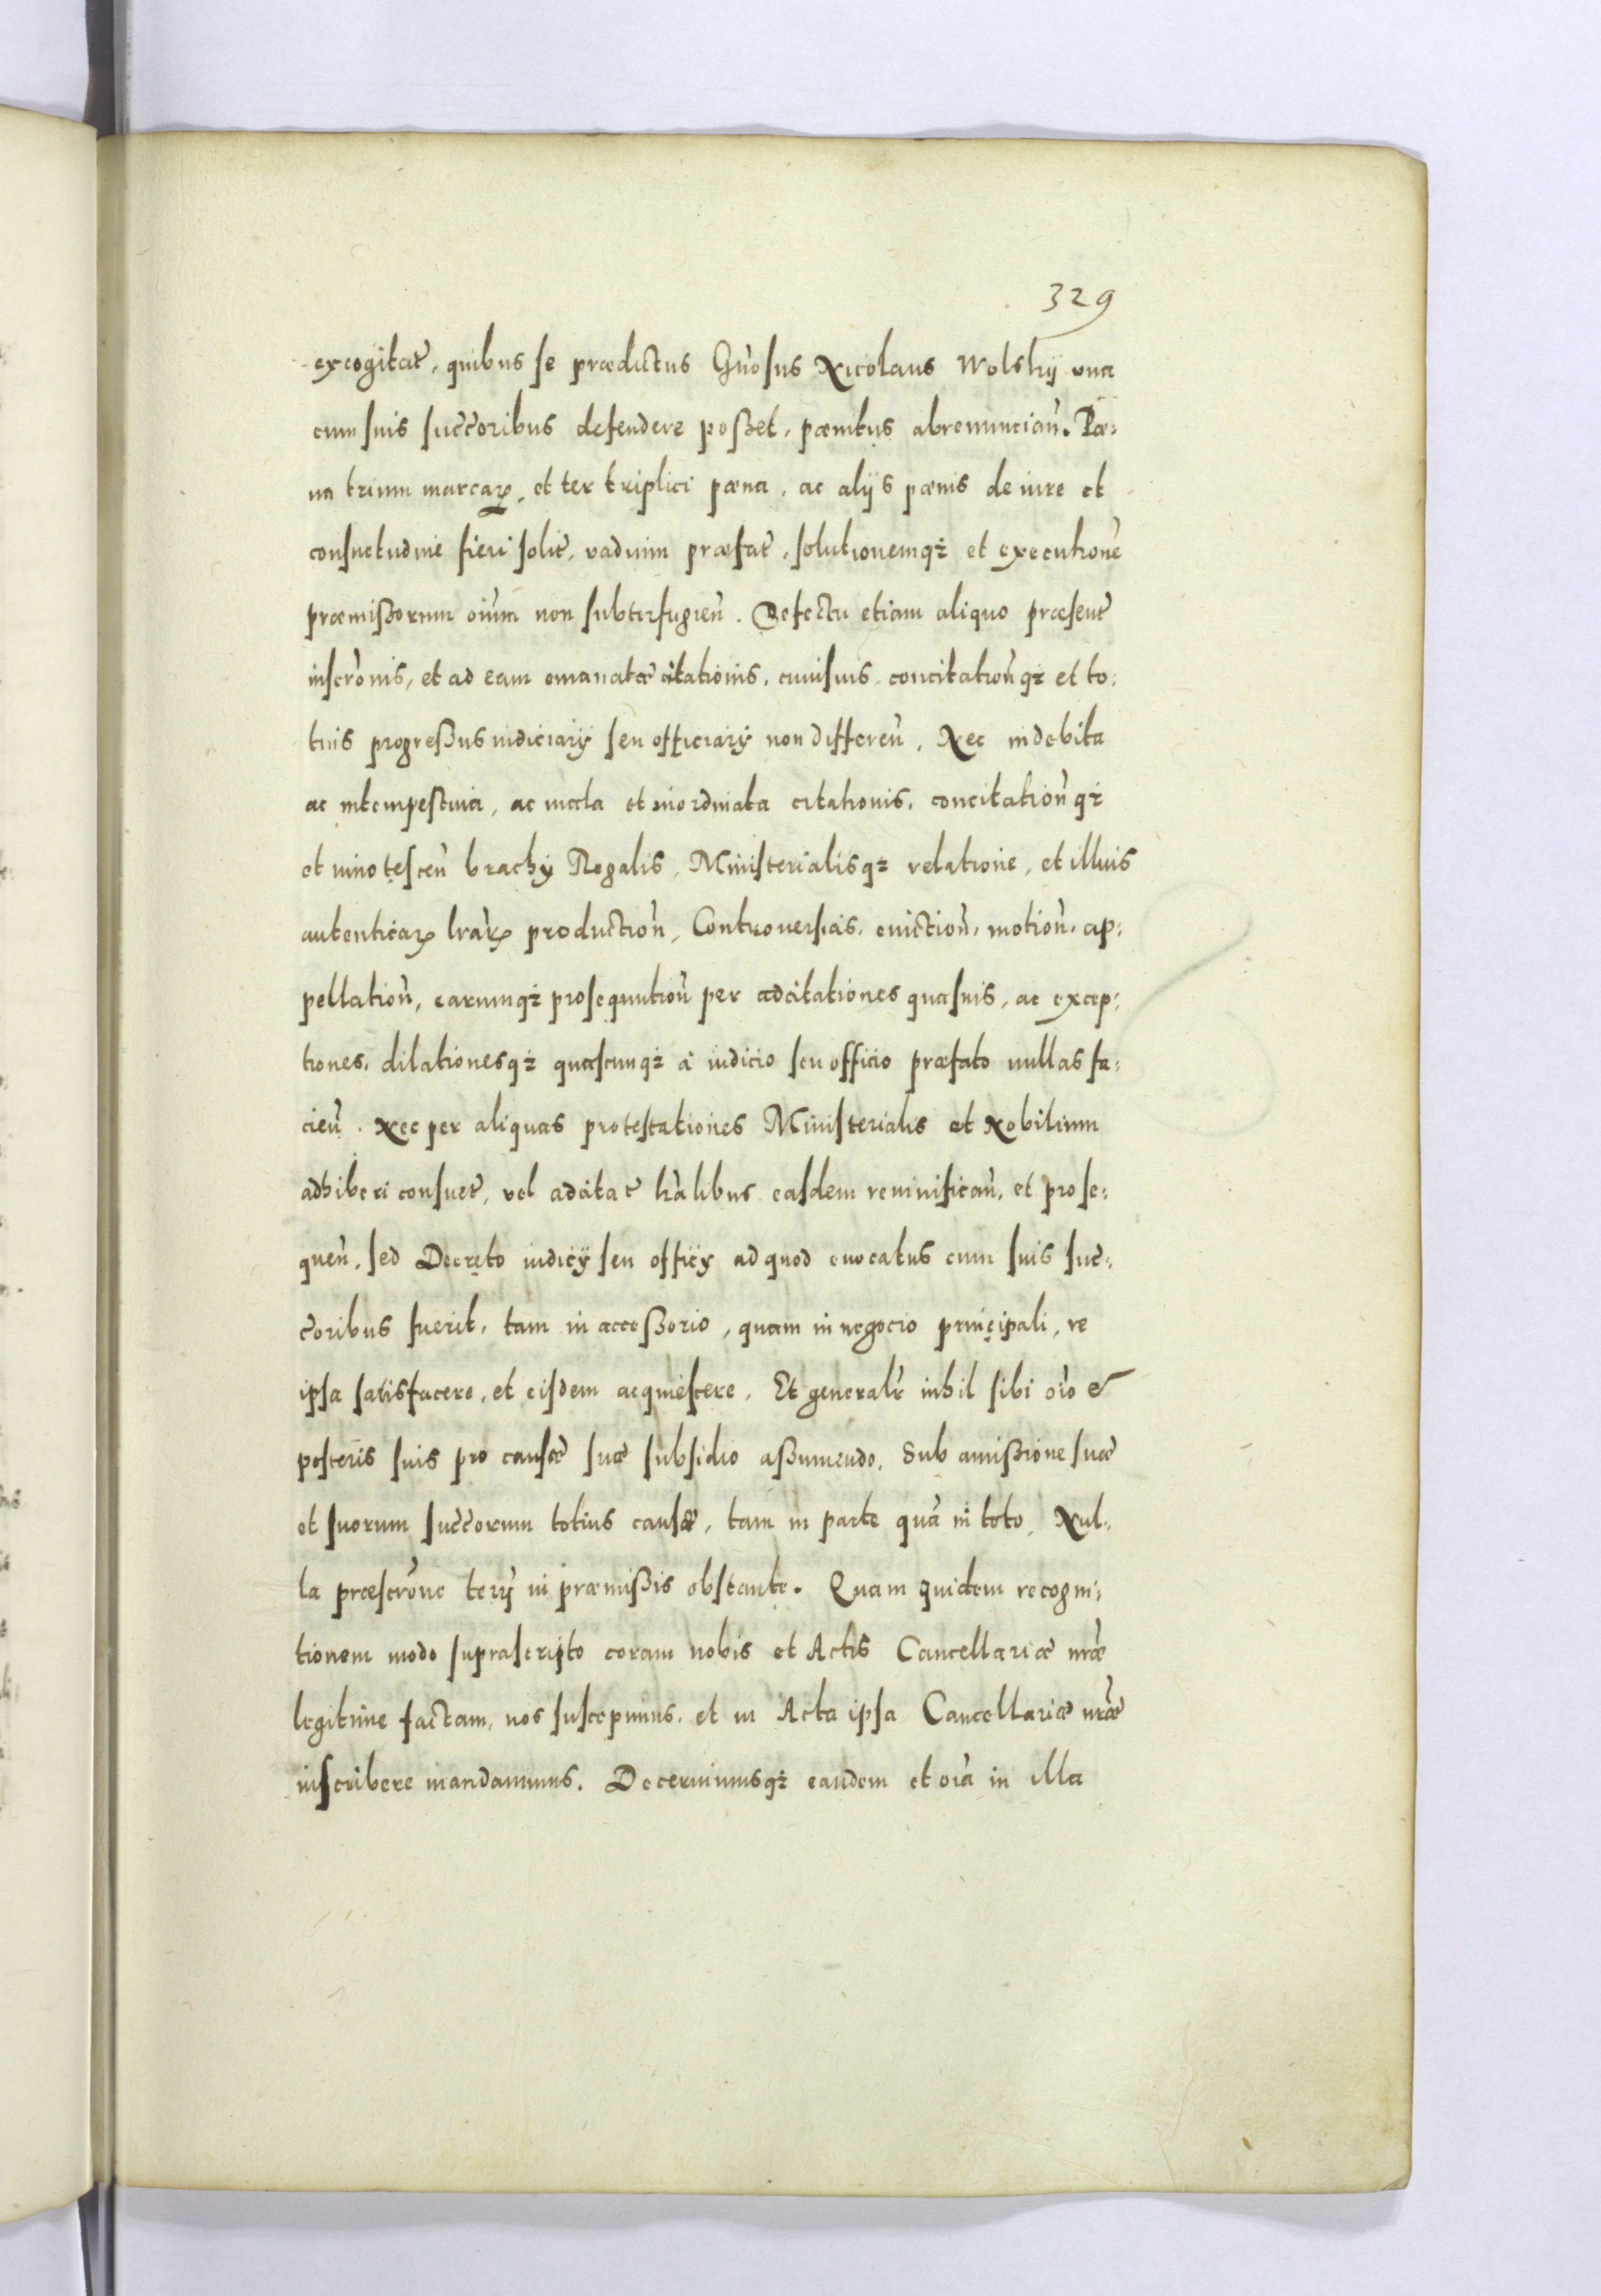 329
excogitat̃, quibus se prædictus Gn̄osus Nicolaus Wolskÿ una
cum suis succ̃oribus defendere poßet, pænitus abrenuncian̄. Pœ:
na trium marcaꝝ, et ter triplici pœna, ac alijs pœnis de iure et
consuetudine fieri solit̃, vadium præfat̃, solutionemqꝫ et executionē
præmißorum oium̄ non subterfugien̄. Defectu etiam aliquo præsent̃
inscrōnis, et ad eam emanatæ citationis, cuiusuis concitation̄qꝫ et to:
tius progreßus iudiciarÿ seu officiarÿ non differen̄, Nec indebita
ac intempestiua, ac mala et inordinata citationis, concitation̄qꝫ
et innotescen̄ brachÿ Regalis, Ministerialisqꝫ relatione, et illuis
autenticaꝝ lrārꝝ production̄, Controuersias, euiction̄, motion̄, ap:
pellation̄, earumqꝫ prosequution̄ per adcitationes quasuis, ac excep:
tiones, dilationesqꝫ quascunqꝫ à iudicio seu officio præfato nullas fa:
cien̄. Nec per aliquas protestationes Ministerialis et Nobilium
adhiberi consuet̃, vel adcitat̃ hāli​bus easdem reuiuifican̄, et prose:
quen̄, sed Decreto iudicÿ seu officÿ ad quod euocatus cum suis suc̃:
c̃oribus fuerit, tam in acceßorio, quam in negocio principali, re
ipsa satisfacere, et eisdem acquiescere. Et generalr̃ inhil sibi oīo &
posteris suis pro causæ suæ subsidio aßumendo, Sub amißione suæ
et suorum succ̃orum totius causæ, tam in parte quā in toto, Nul:
la præscrōne terÿ in præmißis obstante. Quam quidem recogni:
tionem modo suprascripto coram nobis et Actis Cancellariæ nr̃æ
legitime factam, nos suscepimus, et in Acta ipsa Cancellariæ nr̃æ
inscribere mandauimus. Decernimusqꝫ eandem et oīa in illa